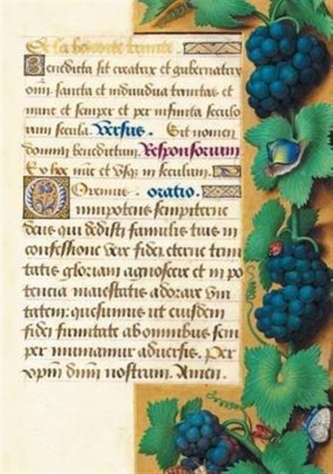 De la benoite trinite.
Benedicta sit creatrix et gubernatrix
omnium sancta et individua trinitas et
nunc et semper et per infinita seculo
rum secula. Versus. Sit nomen
domini benedictum. Responsorium
Ex hoc nunc et usque in seculum.
Oremus. oratio.
Omnipotens sempiterne
deus qui dedisti famulis tuis in
confessione vere fidei eterne trini
tatis gloriam agnoscere et in po
tencia maiestatis adorare Uni
tatem: quesumus ut eiusdem
fidei firmitate ab omnibus sem
per muniamur adversis. Per
xpm dnm nostrum. Amen.